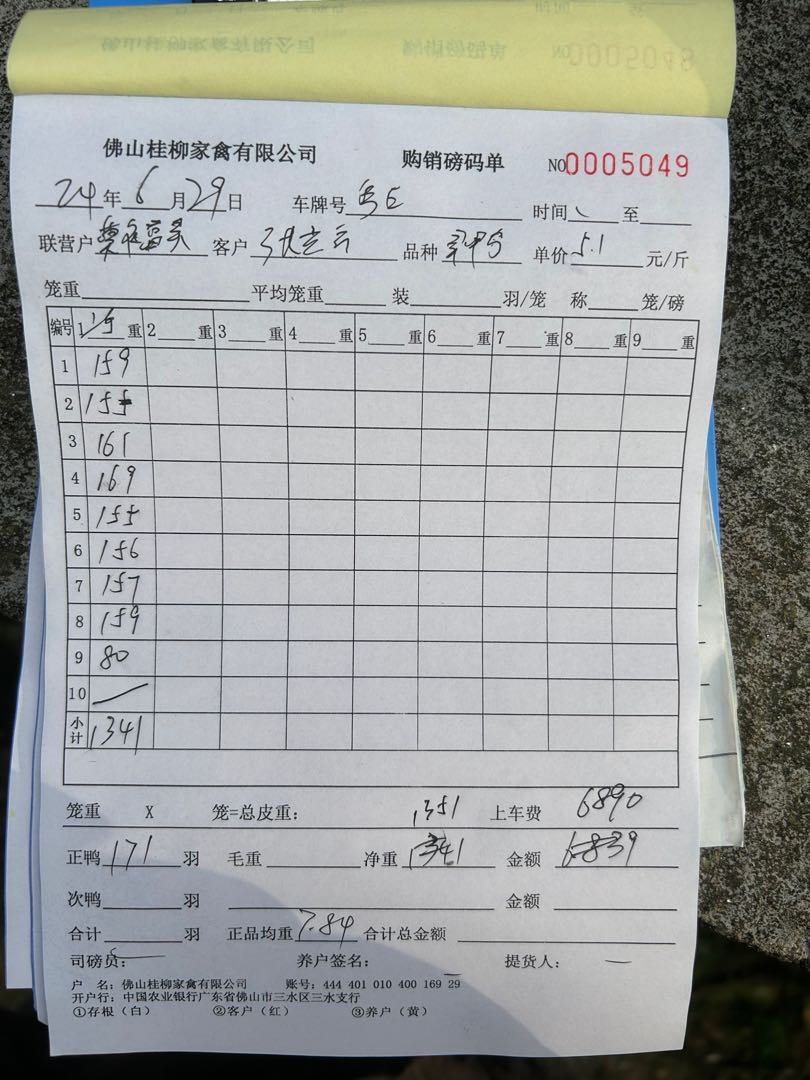 佛山桂柳家禽有限公司 购销磅码单 NO.0005049
24年6月29日 车牌号 时间 至
联营户 客户 品种 单价5.1元/斤
笼重 平均笼重 装 羽/笼 称 笼/磅
编号 1 重 2 重 3 重 4 重 5 重 6 重 7 重 8 重 9 重
1 159
2 155
3 161
4 169
5 155
6 156
7 157
8 159
9 80
10
小计 1341
笼重 X 笼=总皮重: 1351 上车费 6890
正鸭171羽 毛重 净重1341 金额6839
次鸭 羽 金额
合计 羽 正品均重7.84 合计总金额
司磅员: 养户签名: 提货人:
户 名:佛山桂柳家禽有限公司 账号:444 401 010 400 169 29
开户行:中国农业银行广东省佛山市三水区三水支行
①存根(白) ②客户(红) ③养户(黄)